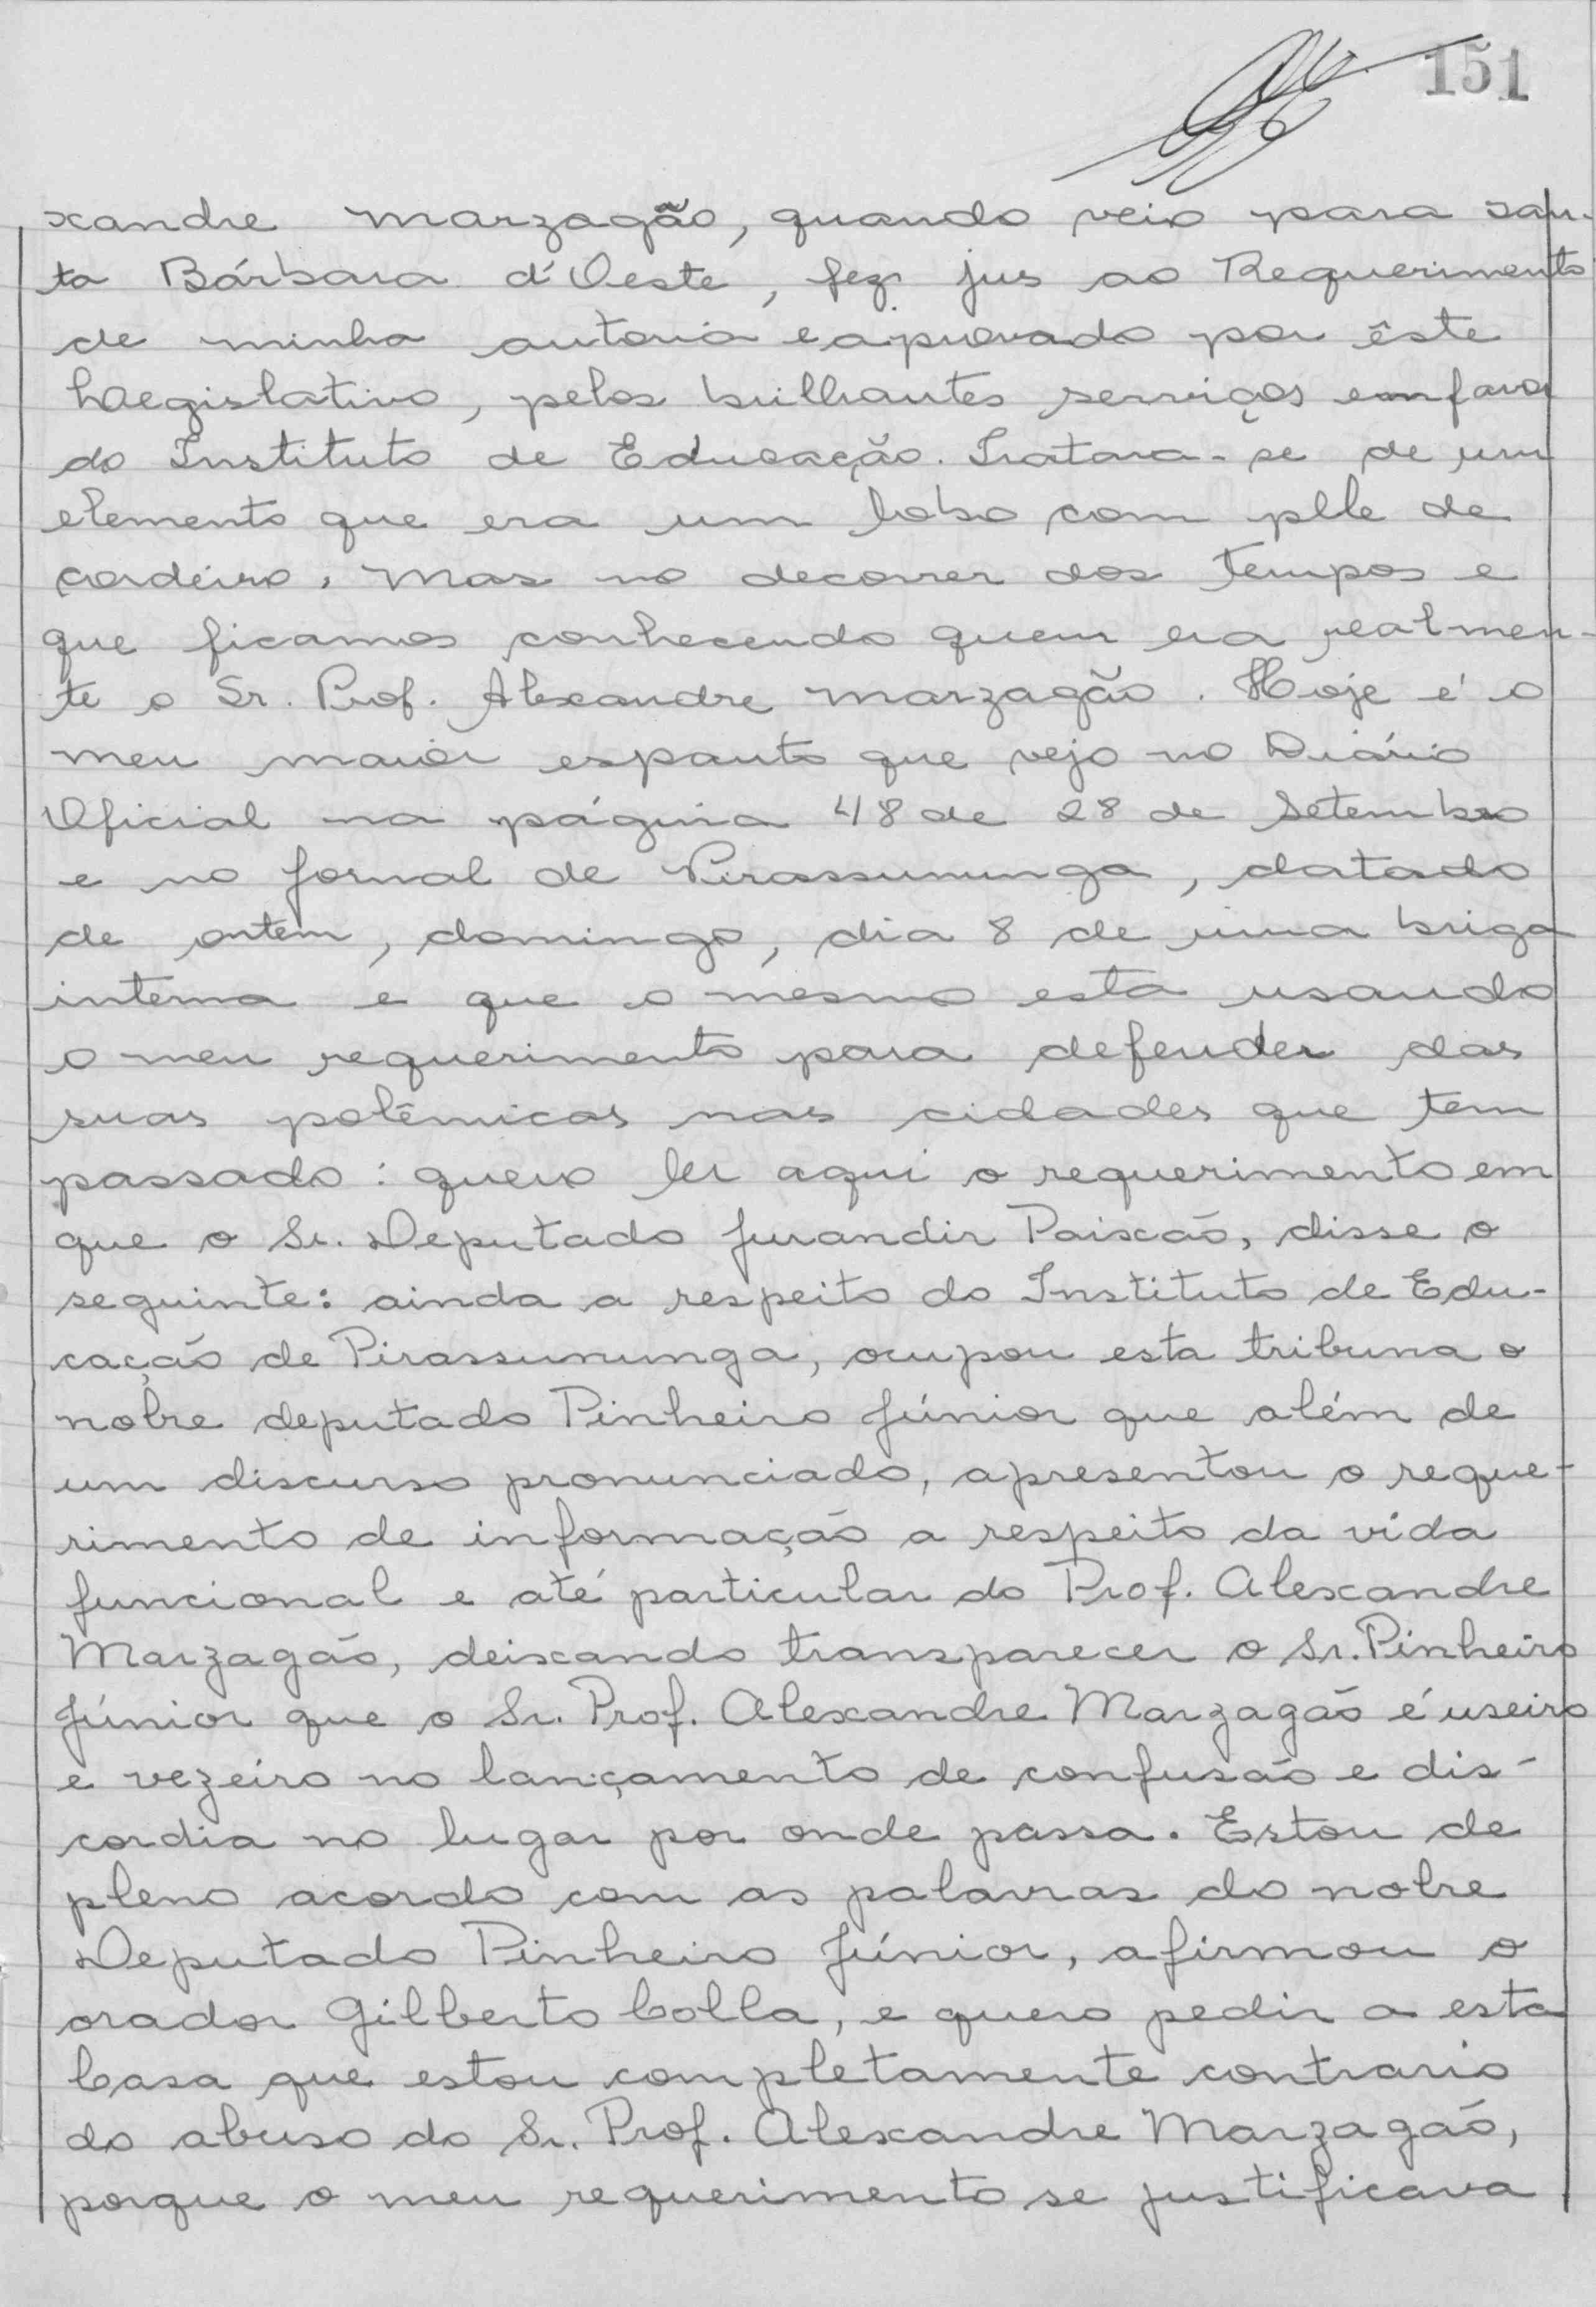 151
xandre Marzagão, quando veio para San-
ta Bárbara d'Oeste, fez jus ao Requerimento
de minha autoria e aprovado por êste
Legislativo, pelos brilhantes serviços em favor
do Instituto de Educação. Tratava-se de um
elemento que era um lobo com plle de
cordeiro, Mas no decorrer dos tempos e
que ficamos conhecendo quem era realmen-
te o Sr. Prof. Alexandre Marzagão. Hoje é o
meu maior espanto que vejo no Diário
Oficial na página 48 de 28 de Setembro
e no Jornal de Pirassununga, datado
de ontem, domingo, dia 8 de uma briga
interna e que o mesmo esta usando
o meu requerimento para defender das
suas polêmicas nas cidades que tem
passado: quero ler aqui o requerimento em
que o Sr. Deputado Jurandir Paixão, disse o
seguinte: ainda a respeito do Instituto de Edu-
cação de Pirassununga, ocupou esta tribuna o
nobre deputado Pinheiro Júnior que além de
um discurso pronunciado, apresentou o reque-
rimento de informação a respeito da vida
funcional e até particular do Prof. Alexandre
Marzagão, deixando transparecer o Sr. Pinheiro
Júnior que o Sr. Prof. Alexandre Marzagão é useiro
e vezeiro no lançamento de confusão e dis-
cordia no lugar por onde passa. Estou de
pleno acordo com as palavras do nobre
Deputado Pinheiro Júnior, afirmou o
orador Gilberto Colla, e quero pedir a esta
Casa que estou completamente contrario
do abuso do Sr. Prof. Alexandre Marzagão,
porque o meu requerimento se justificava